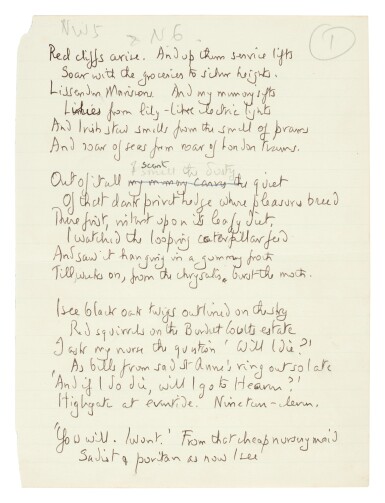 NW5 & N6
1
Red cliffs arise. And up them service lifts
Soar with the groceries to silver heights.
Lissenden Mansions. And my memory sifts
Lilies from lily-like electric lights
And Irish stew smells from the smell of prams
And roar of seas from roar of London trams.
scent
Out of it all my memory carves the quiet
Of that dark privet hedge where pleasures breed
There first, intent upon its leafy diet,
I watched the looping caterpillar feed
And saw it hanging in a gummy froth
Till, weeks on, from the chrysalis burst the moth.
I see black oak twigs outlined on the sky
Red squirrels on the Burdett Coutts estate
I ask my nurse the question 'Will I die?'
As bells from sad St Anne's ring out so late
'And if I do die, will I go to Heaven?'
Highgate at eventide. Nineteen-eleven.
'You will. I won't.' From that cheap nursery maid
Sadist & puritan as now I see